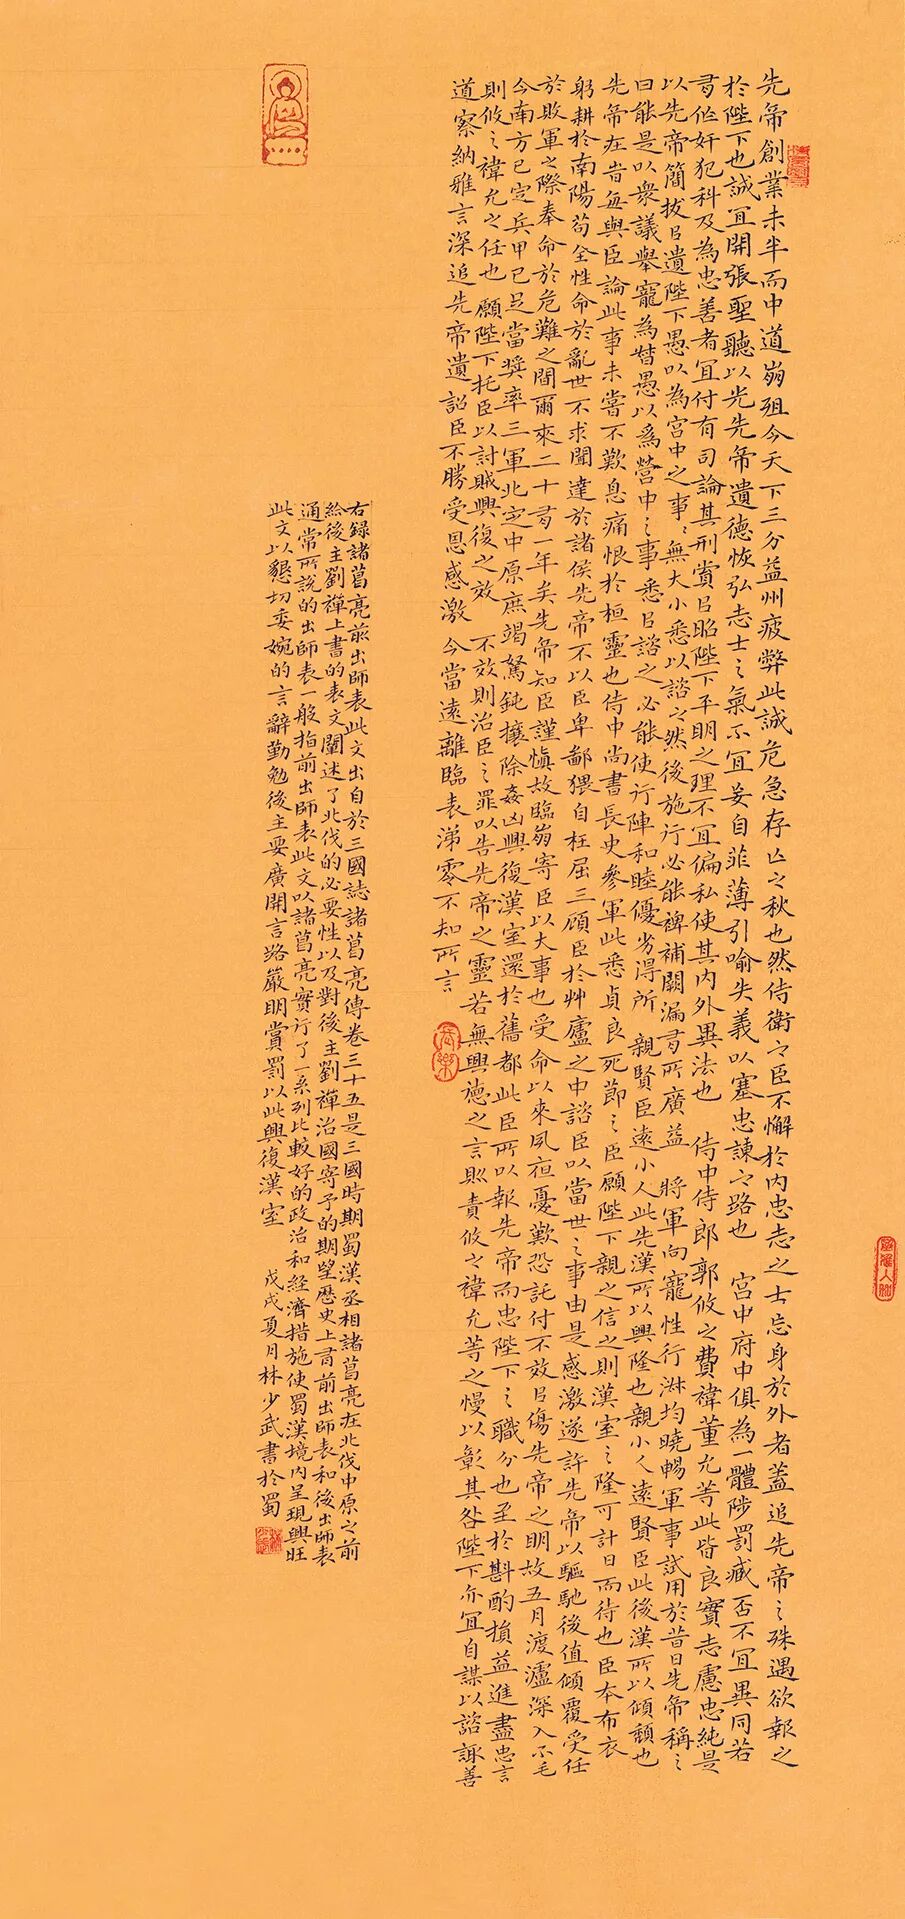 先帝創業未半而中道崩殂今天下三分益州疲弊此誠危急存亡之秋也然侍衛之臣不懈於內忠志之士忘身於外者蓋追先帝之殊遇欲報之
於陛下也誠宜開張聖聽以光先帝遺德恢弘志士之氣不宜妄自菲薄引喻失義以塞忠諫之路也 宮中府中俱為一體陟罰臧否不宜異同若
有作奸犯科及為忠善者宜付有司論其刑賞以昭陛下平明之理不宜偏私使其內外異法也 侍中侍郎郭攸之費禕董允等此皆良實志慮忠純是
以先帝簡拔以遺陛下愚以為宮中之事〻無大小悉以諮之然後施行必能裨補闕漏有所廣益 將軍向寵性行淑均曉暢軍事試用於昔日先帝稱之
曰能是以眾議舉寵為督愚以為營中之事悉以諮之必能使行陣和睦優劣得所 親賢臣遠小人此先漢所以興隆也親小人遠賢臣此後漢所以傾頹也
先帝在時每與臣論此事未嘗不歎息痛恨於桓靈也侍中尚書長史參軍此悉貞良死節之臣願陛下親之信之則漢室之隆可計日而待也臣本布衣
躬耕於南陽苟全性命於亂世不求聞達於諸侯先帝不以臣卑鄙猥自枉屈三顧臣於艸廬之中諮臣以當世之事由是感激遂許先帝以驅馳後值傾覆受任
於敗軍之際奉命於危難之間爾來二十有一年矣先帝知臣謹慎故臨崩寄臣以大事也受命以來夙夜憂歎恐託付不效以傷先帝之明故五月渡瀘深入不毛
今南方已定兵甲已足當獎率三軍北定中原庶竭駑鈍攘除姦凶興復漢室還於舊都此臣所以報先帝而忠陛下之職分也至於斟酌損益進盡忠言
則攸之禕允之任也 願陛下托臣以討賊興復之效 不效則治臣之罪以告先帝之靈若無興德之言則責攸之禕允等之慢以彰其咎陛下亦宜自謀以諮諏善
道察納雅言深追先帝遺詔臣不勝受恩感激 今當遠離臨表涕零不知所言
右錄諸葛亮前出師表此文出自於三國誌諸葛亮傳卷三十五是三國時期蜀漢丞相諸葛亮在北伐中原之前
給後主劉禪上書的表文闡述了北伐的必要性以及對後主劉禪治國寄予的期望歷史上有前出師表和後出師表
通常所說的出師表一般指前出師表此文以諸葛亮實行了一系列比較好的政治和經濟措施使蜀漢境內呈現興旺
此文以懇切委婉的言辭勤勉後主要廣開言路嚴明賞罰以此興復漢室 戊戌夏月林少武書於蜀
長樂